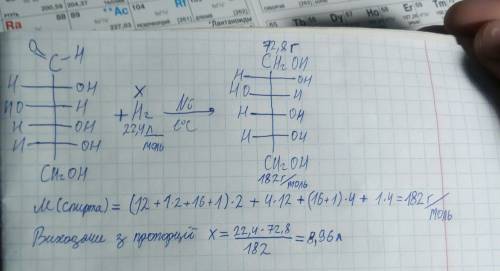 Ra
88
89
**Ac
104
Rf
*Лантаноїди
Tb
Dy
Ho
Er
Tm
O
C
H
H OH
HO H
H OH
H OH
CH₂OH
X
+ H₂
22,4 л/моль
Ni
t°C
72,8 г
CH₂OH
H OH
HO H
H OH
H OH
CH₂OH
182 г/моль
M(спирта) = (12 + 1·2 + 16 + 1)·2 + 4·12 + (16+1)·4 + 1·4 = 182 г/моль
Виходячи з пропорції X = 22,4·72,8/182 = 8,96 л